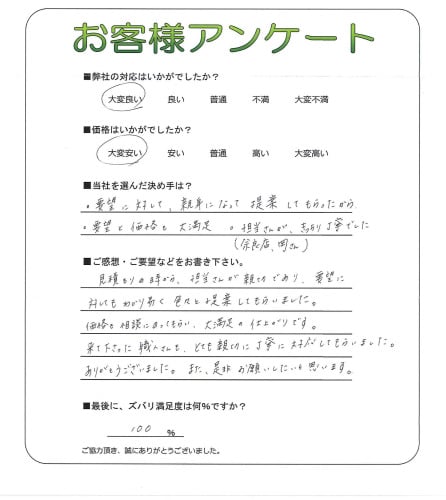 お客様アンケート
■弊社の対応はいかがでしたか？
大変良い 良い 普通 不満 大変不満
■価格はいかがでしたか？
大変安い 安い 普通 高い 大変高い
■当社を選んだ決め手は？
・要望に対して、親身になって提案してもらったから
・要望と価格も大満足 ・担当さんが、きっちり丁寧でした
(奈良店、岡さん)
■ご感想・ご要望などをお書き下さい。
見積もりの時から、担当さんが親切であり、要望に
対してもわかり易く色々と提案してもらいました。
価格も相談にのってもらい、大満足の仕上がりです。
来て下さった職人さんも、とても親切に丁寧に対応してもらいました。
ありがとうございました。また、是非お願いしたいと思います。
■最後に、ズバリ満足度は何%ですか？
100 %
ご協力頂き、誠にありがとうございました。